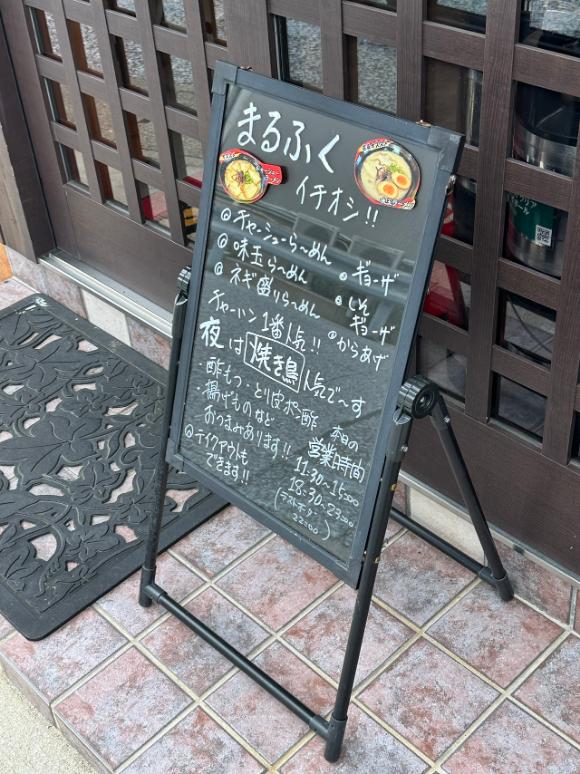 まるふく
イチオシ!!
チャーシューら〜めん
味玉ら〜めん
ネギ盛りら〜めん
ギョーザ
しそギョーザ
からあげ
チャーハン1番人気!!
夜は焼き鳥人気で〜す
・酢もつ・とり皮ポン酢
・揚げものなど
おつまみあります!!
テイクアウトも
できます!!
本日の
営業時間
11:30~15:00
18:30~23:00
(ラストオーダー
22:00)